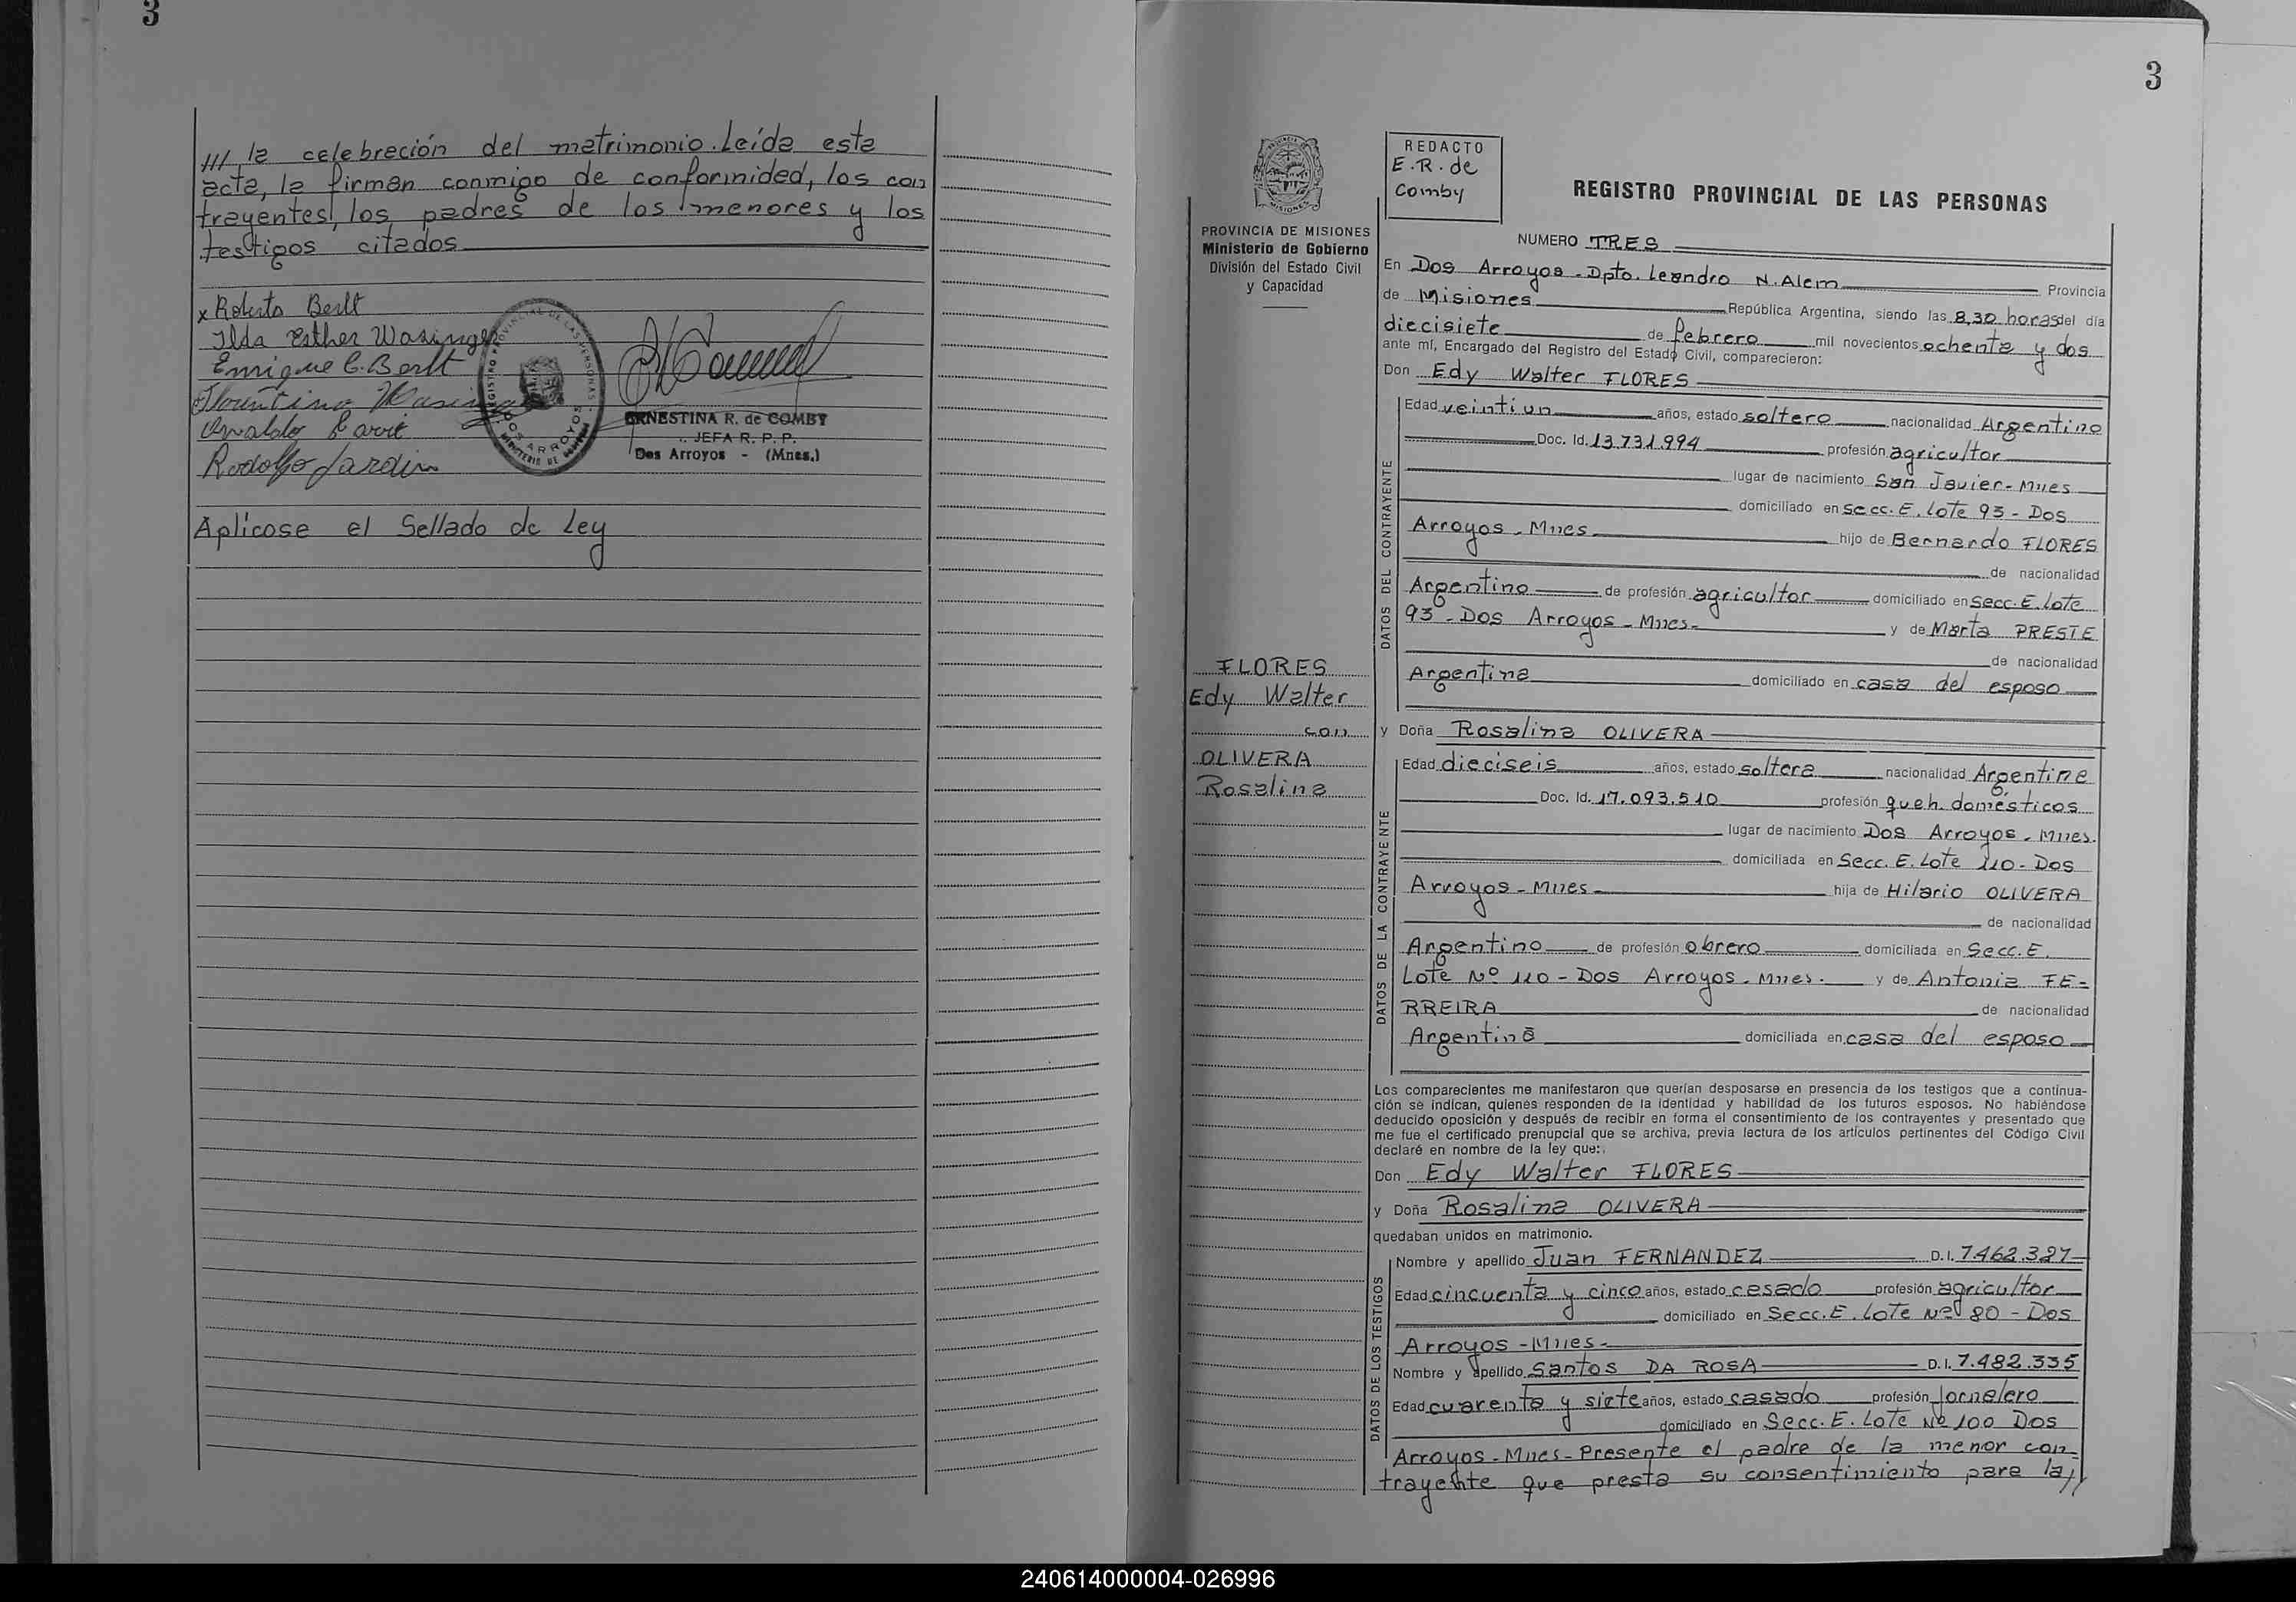 3
/// la celebración del matrimonio. Leída esta
acta, la firman conmigo de conformidad, los con
trayentes, los padres de los menores y los
testigos citados
x Roberto Berlt
Ilda Esther Wasinger
Enrique C. Berlt
Florentino
Osvaldo
Rodolfo Jardin
REGISTRO PROVINCIAL DE LAS PERSONAS
DOS ARROYOS
MINISTERIO DE GOBIERNO
ERNESTINA R. de COMBY
JEFA R. P. P.
Dos Arroyos - (Mnes.)
Aplicose el Sellado de Ley
3
PROVINCIA DE MISIONES
Ministerio de Gobierno
División del Estado Civil
y Capacidad
REDACTO
E.R. de
Comby
REGISTRO PROVINCIAL DE LAS PERSONAS
FLORES
Edy Walter
con
OLIVERA
Rosalina
NUMERO TRES
En Dos Arroyos - Dpto. Leandro N. Alem Provincia
de Misiones República Argentina, siendo las 8,30 horas del día
diecisiete de febrero mil novecientos ochenta y dos
ante mí, Encargado del Registro del Estado Civil, comparecieron:
Don Edy Walter FLORES
DATOS DEL CONTRAYENTE
Edad veintiun años, estado soltero nacionalidad Argentino
Doc. Id. 13.731.994 profesión agricultor
lugar de nacimiento San Javier - Mnes
domiciliado en Secc. E. Lote 93 - Dos
Arroyos - Mnes hijo de Bernardo FLORES
de nacionalidad
Argentino de profesión agricultor domiciliado en Secc. E. lote
93 - Dos Arroyos - Mnes - y de Marta PRESTE
de nacionalidad
Argentina domiciliado en casa del esposo
y Doña Rosalina OLIVERA
DATOS DE LA CONTRAYENTE
Edad dieciseis años, estado soltera nacionalidad Argentina
Doc. Id. 17.093.510 profesión queh. domésticos
lugar de nacimiento Dos Arroyos - Mnes.
domiciliada en Secc. E. Lote 110 - Dos
Arroyos - Mnes - hija de Hilario OLIVERA
de nacionalidad
Argentino de profesión obrero domiciliada en Secc. E.
Lote Nº 110 - Dos Arroyos - Mnes. y de Antonia FE-
RREIRA de nacionalidad
Argentina domiciliada en casa del esposo
Los comparecientes me manifestaron que querían desposarse en presencia de los testigos que a continua-
ción se indican, quienes responden de la identidad y habilidad de los futuros esposos. No habiéndose
deducido oposición y después de recibir en forma el consentimiento de los contrayentes y presentado que
me fue el certificado prenupcial que se archiva, previa lectura de los artículos pertinentes del Código Civil
declaré en nombre de la ley que:
Don Edy Walter FLORES
y Doña Rosalina OLIVERA
quedaban unidos en matrimonio.
DATOS DE LOS TESTIGOS
Nombre y apellido Juan FERNANDEZ D.I. 7.462.327
Edad cincuenta y cinco años, estado casado profesión agricultor
domiciliado en Secc. E. Lote Nº 80 - Dos
Arroyos - Mnes -
Nombre y apellido Santos DA ROSA D.I. 7.482.335
Edad cuarenta y siete años, estado casado profesión Jornalero
domiciliado en Secc. E. Lote Nº 100 Dos
Arroyos - Mnes - Presente el padre de la menor con-
trayente que presta su consentimiento para la //
240614000004-026996